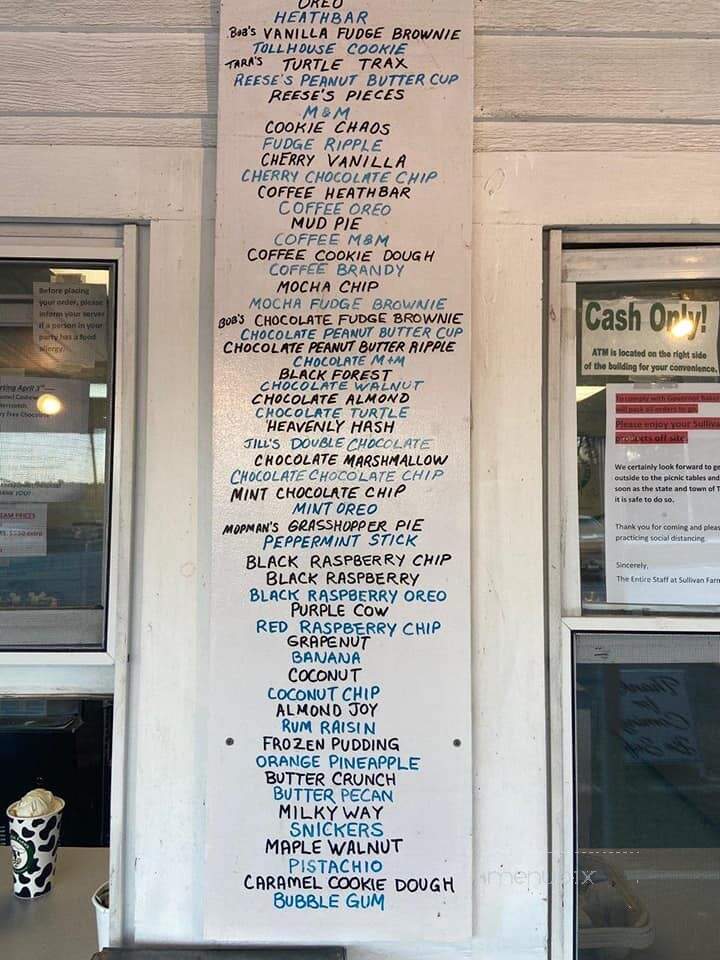 OREO
HEATHBAR
BOB'S VANILLA FUDGE BROWNIE
TOLLHOUSE COOKIE
TARA'S TURTLE TRAX
REESE'S PEANUT BUTTER CUP
REESE'S PIECES
M&M
COOKIE CHAOS
FUDGE RIPPLE
CHERRY VANILLA
CHERRY CHOCOLATE CHIP
COFFEE HEATHBAR
COFFEE OREO
MUD PIE
COFFEE M&M
COFFEE COOKIE DOUGH
COFFEE BRANDY
MOCHA CHIP
MOCHA FUDGE BROWNIE
BOB'S CHOCOLATE FUDGE BROWNIE
CHOCOLATE PEANUT BUTTER CUP
CHOCOLATE PEANUT BUTTER RIPPLE
CHOCOLATE M+M
BLACK FOREST
CHOCOLATE WALNUT
CHOCOLATE ALMOND
CHOCOLATE TURTLE
HEAVENLY HASH
JILL'S DOUBLE CHOCOLATE
CHOCOLATE MARSHMALLOW
CHOCOLATE CHOCOLATE CHIP
MINT CHOCOLATE CHIP
MINT OREO
MOPMAN'S GRASSHOPPER PIE
PEPPERMINT STICK
BLACK RASPBERRY CHIP
BLACK RASPBERRY
BLACK RASPBERRY OREO
PURPLE COW
RED RASPBERRY CHIP
GRAPENUT
BANANA
COCONUT
COCONUT CHIP
ALMOND JOY
RUM RAISIN
FROZEN PUDDING
ORANGE PINEAPPLE
BUTTER CRUNCH
BUTTER PECAN
MILKY WAY
SNICKERS
MAPLE WALNUT
PISTACHIO
CARAMEL COOKIE DOUGH
BUBBLE GUM
Before placing
your order, please
inform your server
if a person in your
party has a food
allergy.
April 3
Cash Only!
ATM is located on the right side
of the building for your convenience.
To comply with Governor
will pack all orders to go.
Please enjoy your
products off site
We certainly look forward to
outside to the picnic tables and
soon as the state and town of
it is safe to do so.
Thank you for coming and
practicing social distancing.
Sincerely,
The Entire Staff at Sullivan
menupix